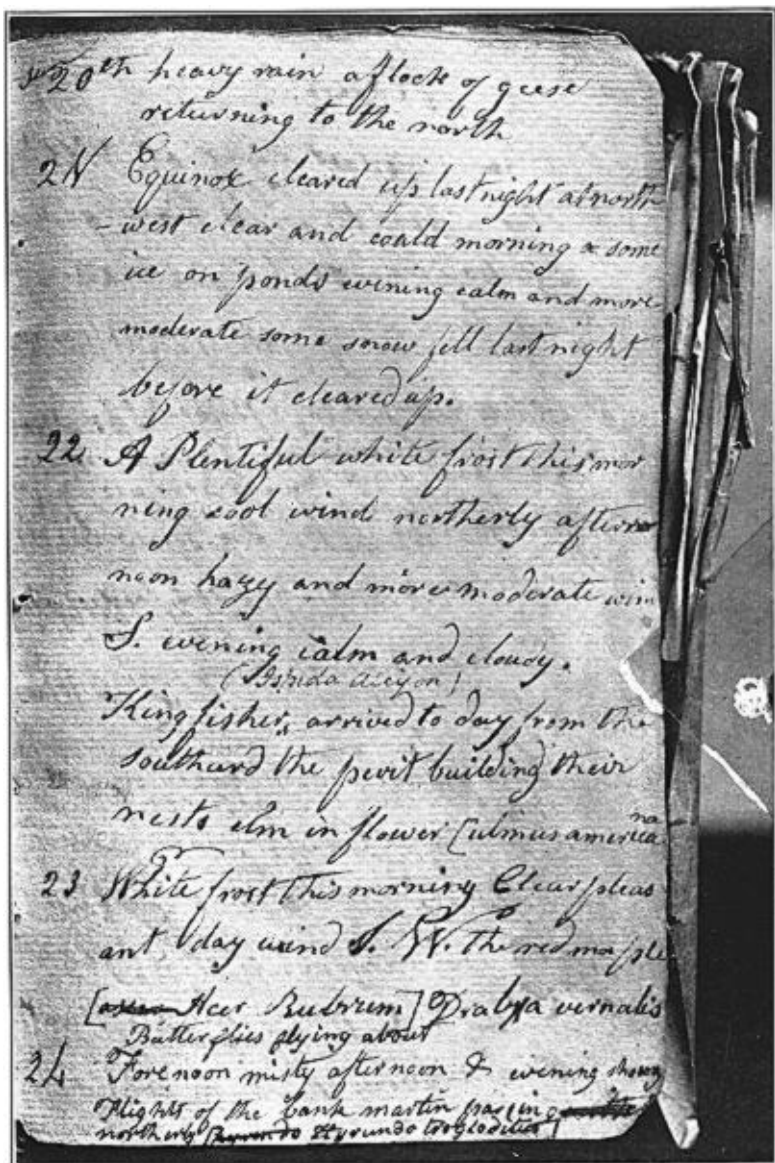 20th heavy rain a flock of geese
returning to the north
21 Equinox cleared up last night at north
-west clear and coald morning & some
ice on ponds evining calm and more
moderate some snow fell last night
before it cleared up.
22 A Plentiful white frost this mor
ning cool wind northerly after
noon hazy and more moderate win
S. evening calm and cloudy.
(Ispida Alcyon)
Kingfisher, arrived to day from the
southurd the pewit building their
nests elm in flower [ulmus america
na
23 White frost this morning Clear pleas
ant day wind S. W. the red maple
[Acer Rubrum] Draba vernalis
Butterflies flying about
24 Forenoon misty afternoon & evening showy
Flights of the bank martin passing
northerly [Hyrundo